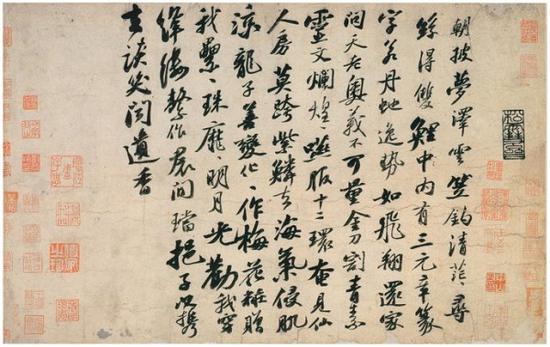 朝披夢澤雲笠釣清茫〻尋
絲得雙鯉中內有三元章篆
字若丹虵逸勢如飛翔還家
問天老奧義不可量金刀割青素
靈文爛煌〻嚥服十二環奄見仙
人房莫跨紫鱗去海氣侵肌
涼龍子善變化〻作梅花粧贈
我纍〻珠靡〻明月光勸我穿
絳縷繫作裠間璫挹子以携
去談笑聞遺香